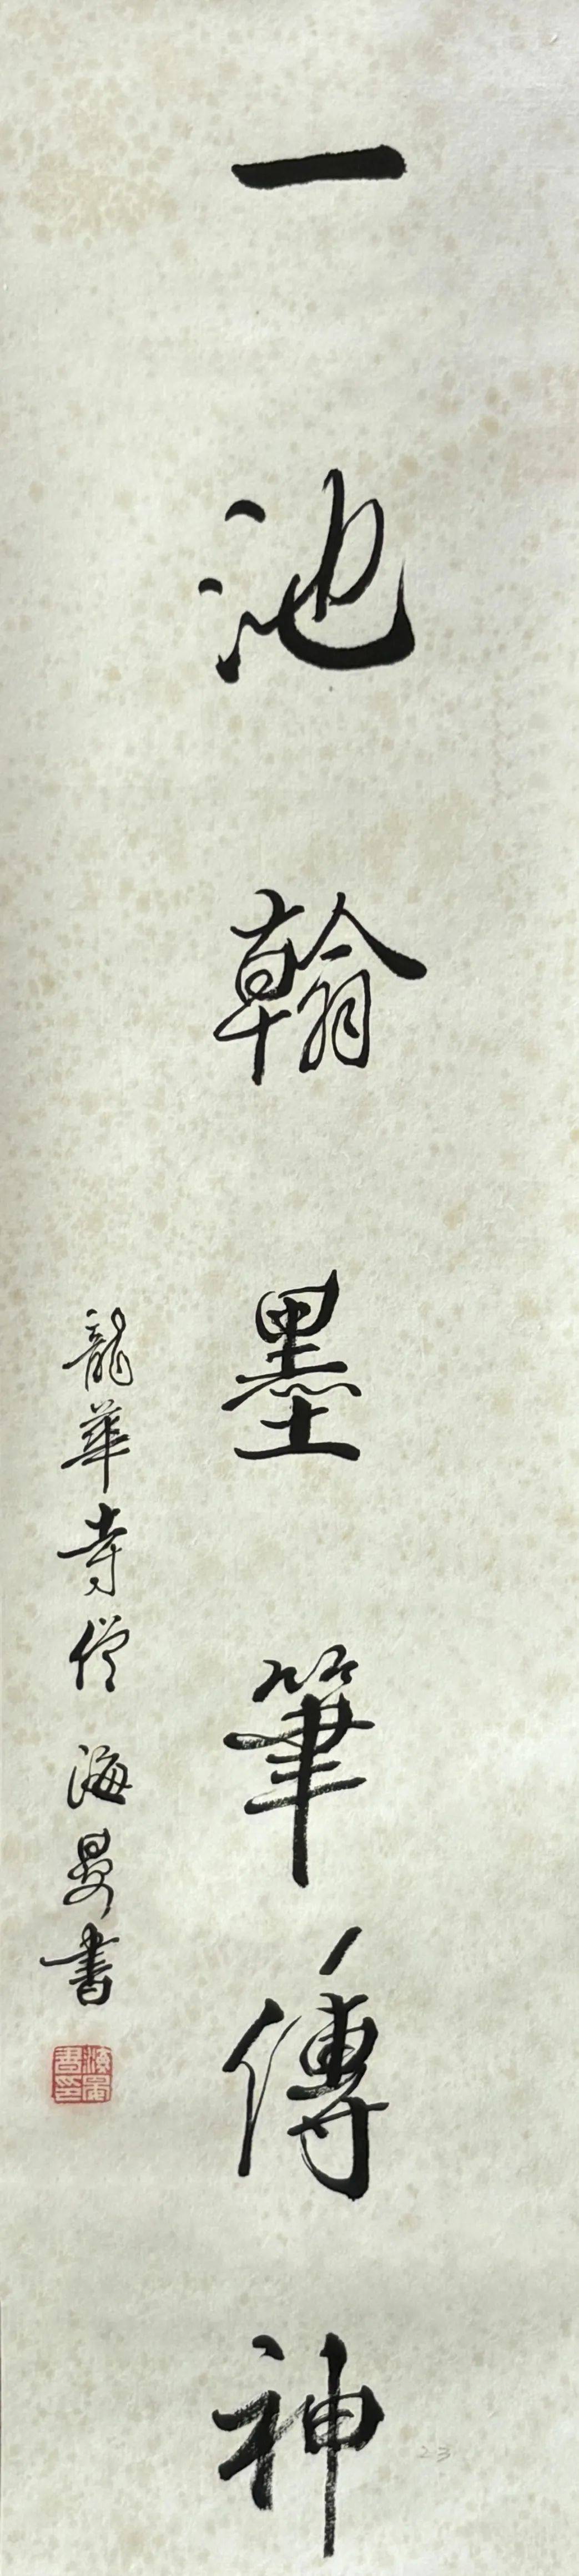 一池翰墨筆傳神
龍華寺僧 海曼書
23